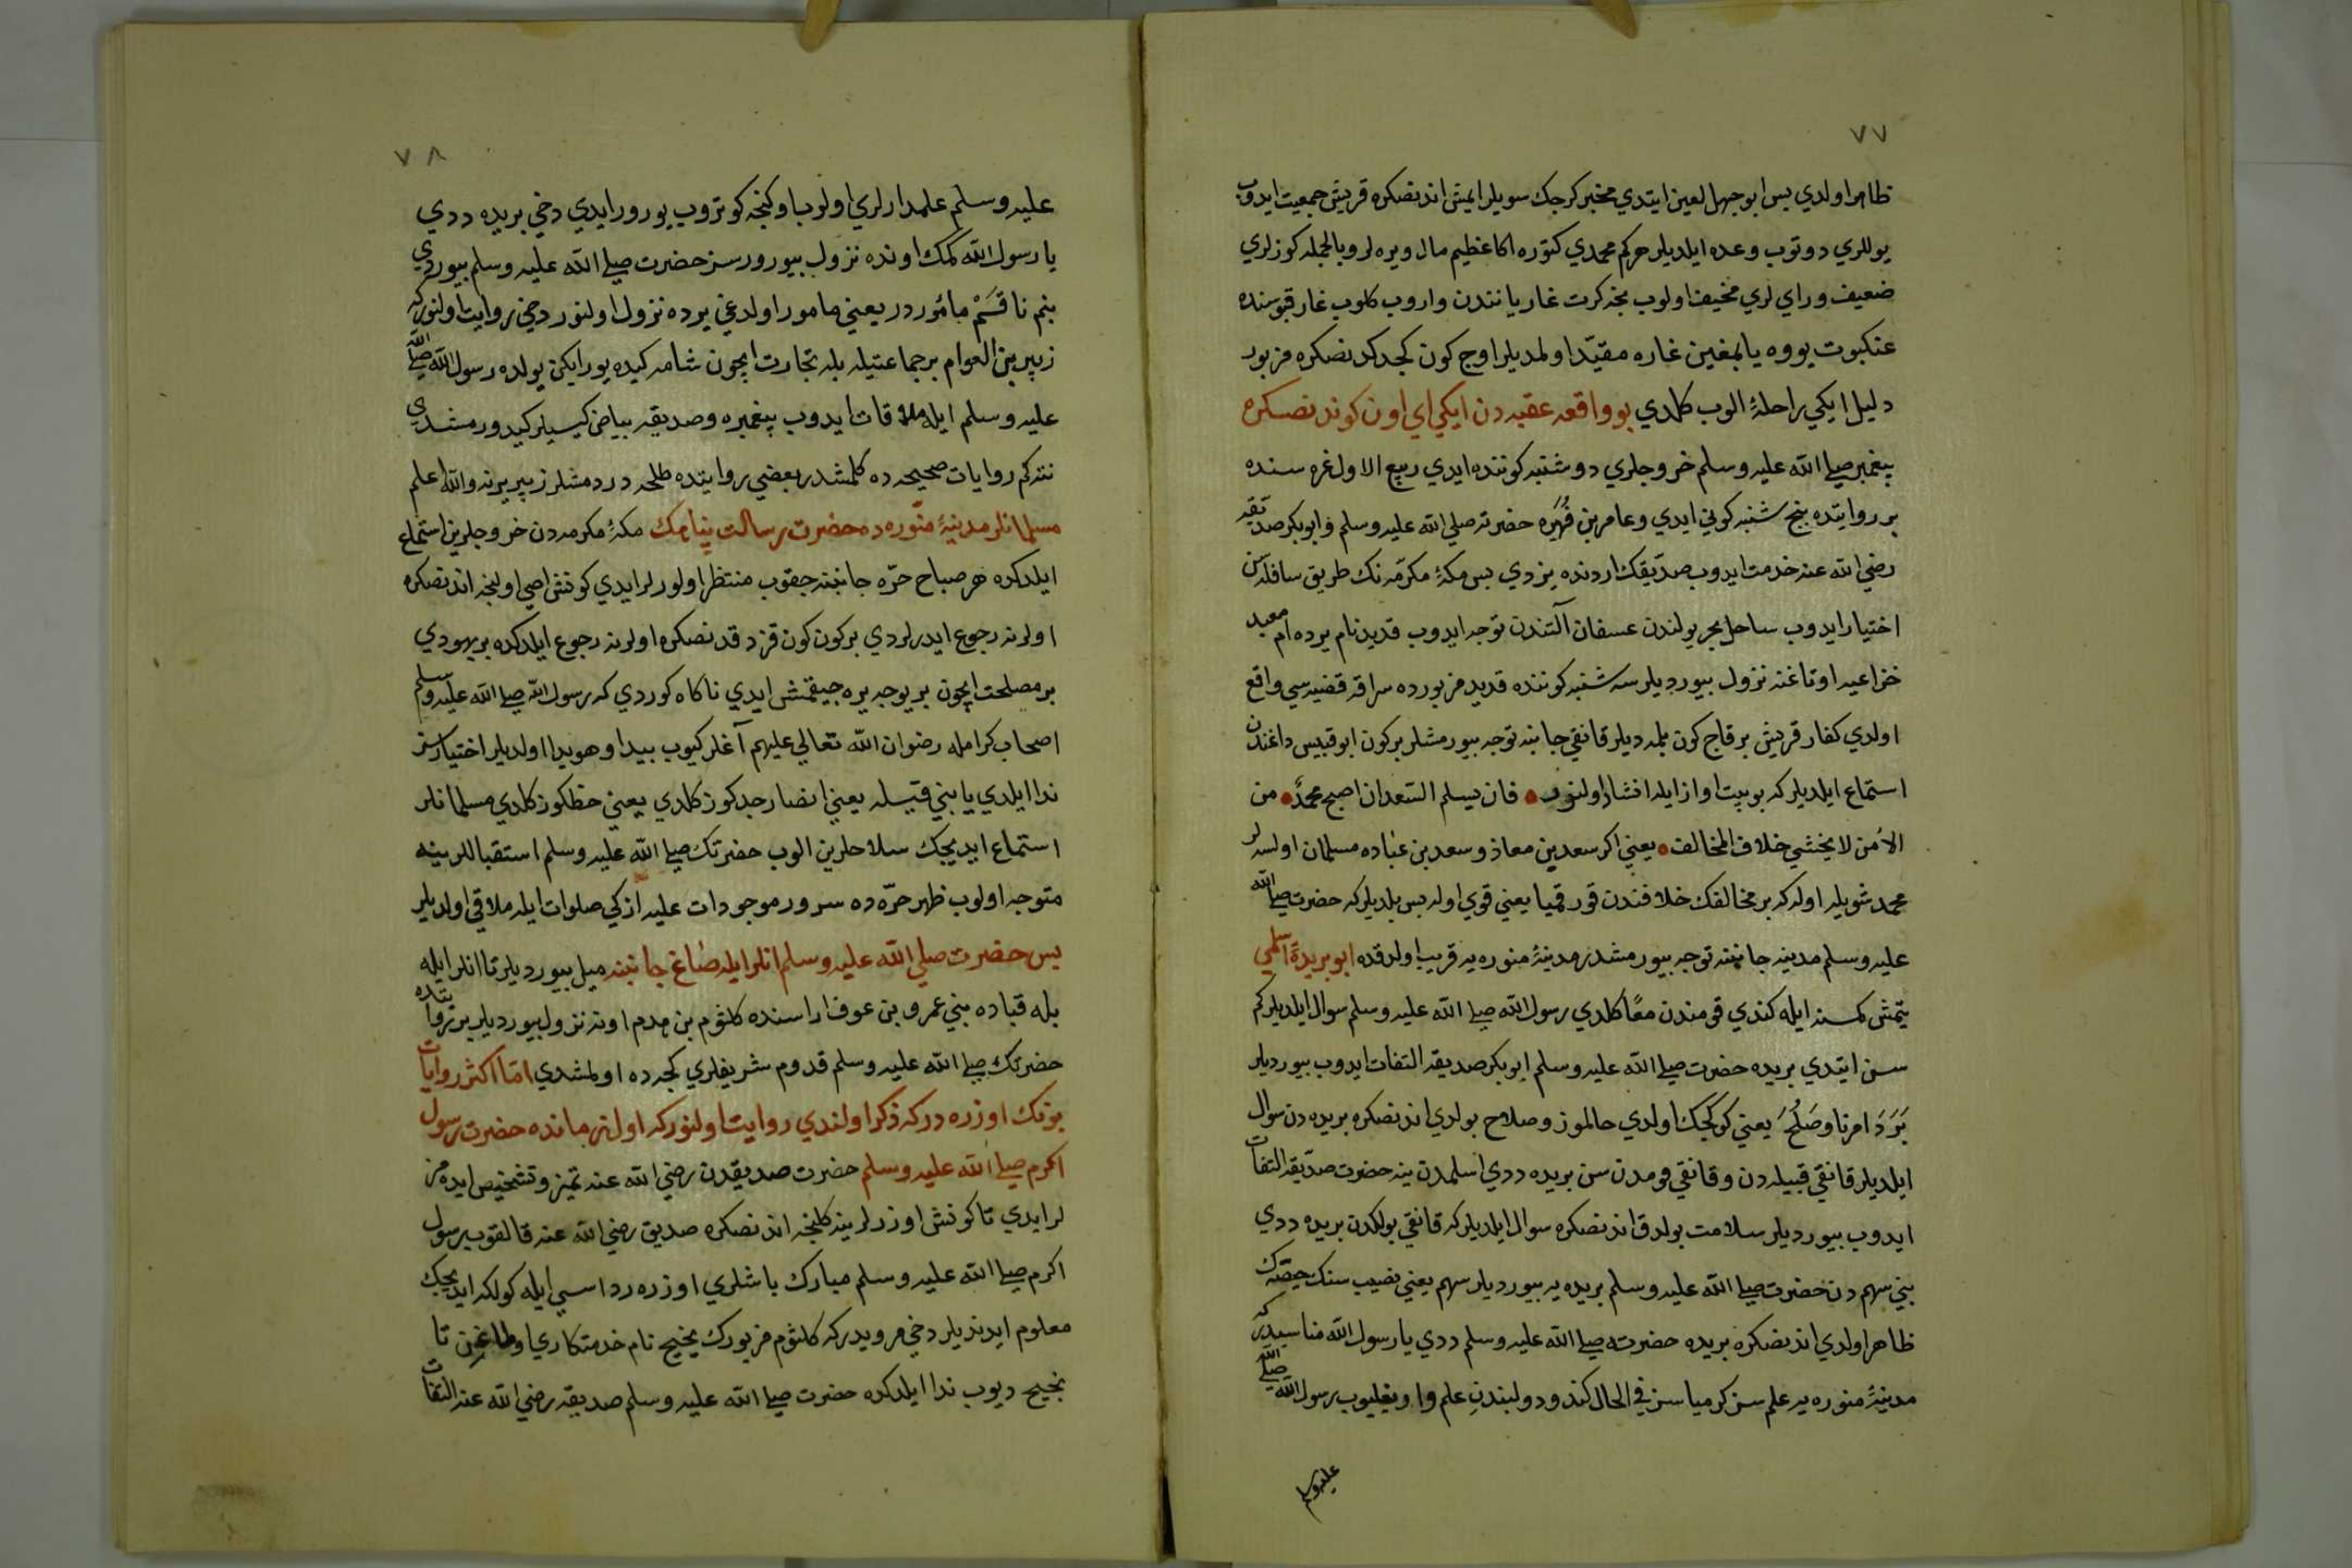 ٧٧
ظاهر اولدي پس ابو جهل لعين ايتدي مخبر كرجك سويلر ايمش اندنصكره قريش جمعيت ايدوب
يوللري دوتوب وعده ايلديلر هركم محمدي كتوره اكا عظيم مال ويره لر وبالجمله كوزلري
ضعيف وراي لري مخيف اولوب نجه كرت غار ياننندن واروب كلوب غار قپوسنده
عنكبوت يووه ياپمغين غاره مقيد اولمديلر اوج كون كجدكدنصكره مزبور
دليل ايكي راحلۀ الوب كلدي بو واقعه عقبه دن ايكي اي اون كوندنصكره
پيغمبر صلى الله عليه وسلم خروجلري دوشنبه كوننده ايدي ربيع الاول غره سنده
بر روايتده پنج شنبه كوني ايدي وعامر بن فهيره حضرته صلي الله عليه وسلم وابوبكر صديقه
رضي الله عنه خدمت ايدوب صديقك اردنده يزدي پس مكۀ مكرمه نك طريق سافله سن
اختيار ايدوب ساحل بحر يولندن عسفان آلتندن توجه ايدوب قديد نام يرده ام معبد
خزاعيه اوتاغنه نزول بيورديلر سه شنبه كوننده قديد مزبورده سراقه قضيه سي واقع
اولدي كفار قريش برقاج كون بلمديلر قانقي جانبه توجه بيورمشلر بركون ابو قبيس داغندن
استماع ايلديلر كه بو بيت اواز ايله انشاد اولنور فان يسلم السعدان اصبح محمد من
الأمن لا يخشي خلاف المخالف يعني اكر سعد بن معاذ وسعد بن عباده مسلمان اولسه لر
محمد شويله اوله كه بر مخالفك خلافندن قورقميا يعني قوي اوله پس بلديلر كه حضرت صلى الله
عليه وسلم مدينه جانبنه توجه بيورمشدر مدينۀ منوره يه قريب اولدقده ابو بريدة اسلمي
يتمش كمسنه ايله كندي قومندن معًا كلدي رسول الله صلى الله عليه وسلم سوال ايلديلر كم
سن ايتدي بريده حضرت صلى الله عليه وسلم ابوبكر صديقه التفات ايدوب بيورديلر
بَرَدَ امرنا وصَلُحَ يعني كوكجك اولدي حالموز وصلاح بولدي اندنصكره بريده دن سوال
ايلديلر قانقي قبيله دن وقانقي قومدن سن بريده ددي اسلمدن ينه حضرت صديقه التفات
ايدوب بيورديلر سلامت بولدق اندنصكره سوال ايلديلر كه قانقي بولكدن بريده ددي
بني سهم دن حضرت صلى الله عليه وسلم بريده يه بيورديلر سهم يعني نصيب سنك حصه ك
ظاهر اولدي اندنصكره بريده حضرته صلى الله عليه وسلم ددي يا رسول الله مناسبدر كه
مدينۀ منوره يه علم سز كرمياسز في الحال كندو دولبندن علم وا ويغليوب رسول الله صلى الله
عليه وسلم
٧٨
عليه وسلم علمدارلري اولوب اوكنجه كوتروب يورور ايدي دخي بريده ددي
يا رسول الله كمك اونده نزول بيورورسز حضرت صلى الله عليه وسلم بيوردي
بنم ناقَه م مأموردر يعني مامور اولدغي يرده نزول اولنور دخي روايت اولنور كه
زبير بن العوام بر جماعتيله بله تجارت ايچون شامه كيده يورايكن يولده رسول الله صلى الله
عليه وسلم ايله ملاقات ايدوب پيغمبره وصديقه بياض كيسيلر كيدورمشدي
نتكم روايات صحيحه ده كلمشدر بعضي روايتده طلحه در دمشلر زبير يرنه والله اعلم
مسلمانلر مدينۀ منوره ده حضرت رسالت پناهك مكۀ مكرمه دن خروجلرين استماع
ايلدكده هر صباح حره جانبنه چقوب منتظر اولورلر ايدي كونش اصي اولنجه اندنصكره
اولرنه رجوع ايدرلردي بركون كون قزدقدنصكره اولرنه رجوع ايلدكده بر يهودي
بر مصلحت ايچون بر يوجه يره جيقمش ايدي ناكاه كوردي كه رسول الله صلى الله عليه وسلم
اصحاب كرامله رضوان الله تعالي عليهم آغلر كيوب پيدا وهويدا اولديلر اختيارسز
ندا ايلدي يا بني قيله يعني انصار جدكوز كلدي يعني حظكوز كلدي مسلمانلر
استماع ايديجك سلاحلرين الوب حضرتك صلى الله عليه وسلم استقباللرينه
متوجه اولوب ظهر حره ده سرور موجودات عليه ازكي صلوات ايله ملاقي اولديلر
پس حضرت صلي الله عليه وسلم انلر ايله صاغ جانبنه ميل بيورديلر تا انلر ايله
بله قباده بني عمرو بن عوف اراسنده كلثوم بن هدم اونه نزول بيورديلر بر روايتده
حضرتك صلى الله عليه وسلم قدوم شريفلري كجه ده اولمشدي امّا اكثر روايات
بونك اوزره در كه ذكر اولندي روايت اولنور كه اول زمانده حضرت رسول
اكرم صلى الله عليه وسلم حضرت صديقدن رضي الله عنه تميز وتشخيص ايدمز
لر ايدي تا كونش اوزرلرينه كلنجه اندنصكره صديق رضي الله عنه قالقوب رسول
اكرم صلى الله عليه وسلم مبارك باشلري اوزره رداسي ايله كولكه ايديجك
معلوم ايدنديلر دخي مرويدر كه كلثوم مزبورك نجيح نام خدمتكاري اولماغن تا
نجيح ديوب ندا ايلدكده حضرت صلى الله عليه وسلم صديقه رضي الله عنه التفات